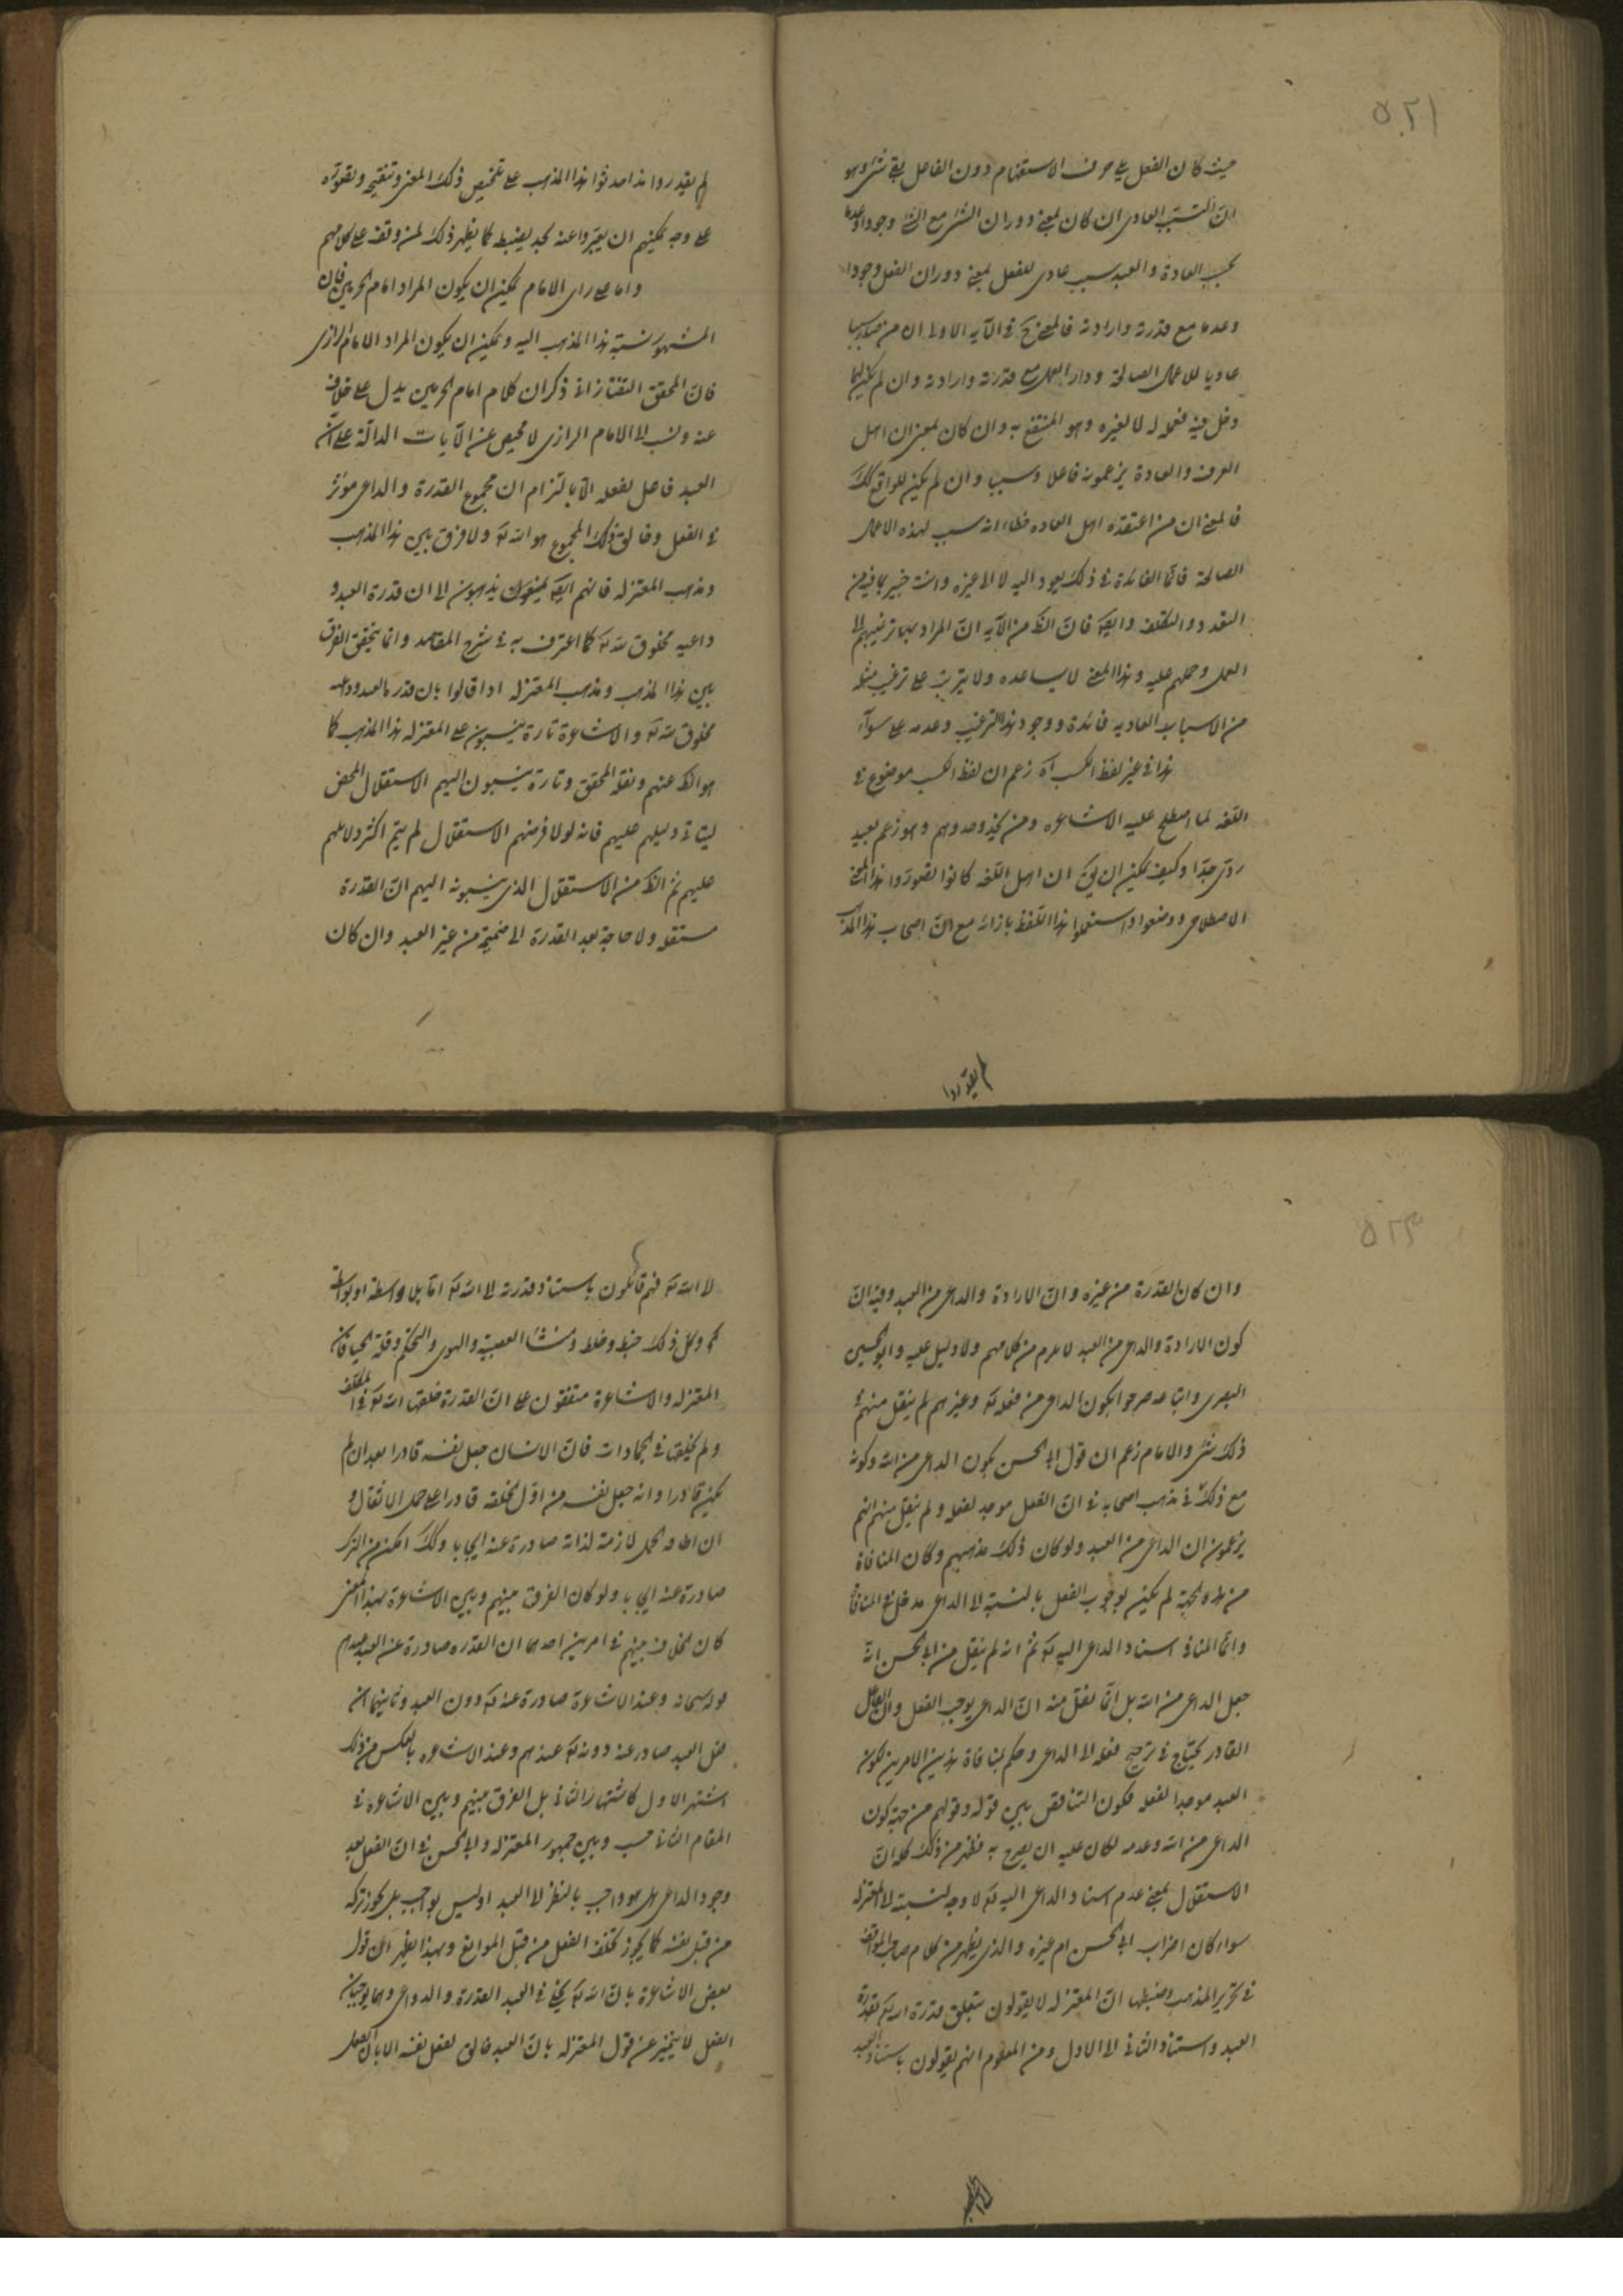 ٥٢١
حيث كان الفعل يلي حرف الاستفهام دون الفاعل بقي شئ وهو
انّ السبب العادى ان كان بمعنى دوران الشئ مع الشئ وجودا وعدما
بحسب العادة والعبد سبب عادى للفعل بمعنى دوران الفعل وجودا
وعدما مع قدرته وارادته فالمعنى ح فى الآية الاولى ان من صار سببا
عاديا للاعمال الصالحة ودار العمل مع قدرته وارادته وان لم يكن لهما
دخل فيه فعمله له لا لغيره وهو المنتفع به وان كان بمعنى ان اهل
العرف والعادة يزعمونه فاعلا وسببا وان لم يكن للواقع كك
فالمعنى ان من اعتقده اهل العاده خطاء انه سبب لهذه الاعمال
الصالحة فانّما الفائدة فى ذلك يعود اليه لا الى غيره وانت خبير بما فيه من
التعدد والتكلف وايض فانّ الظ من الآية انّ المراد بها ترغيبهم الى
العمل وحملهم عليه وهذا المعنى لا يساعده ولا يترتب على ترغيب مثله
من الاسباب العاديه فائدة ووجود هذا الترغيب وعدمه على سوآء
هذا فى غير لفظ الكسب آه زعم ان لفظ الكسب موضوع فى
اللغه لما اصطلح عليه الاشاعره ومن يحذو حذوهم وهو زعم بعيد
ردى جدّا وكيف يمكن ان يق ان اهل اللغه كانوا تصوروا هذا المعنى
الاصطلاحى ووضعوا واستعملوا هذا اللفظ بازائه مع انّ اصحاب هذا المذهب
لم يقدروا
لم يقدروا مذ احدثوا هذا المذهب على تلخيص ذلك المعنى وتنقيحه وتصوّره
على وجه يمكنهم ان يعبّروا عنه بحد يضبطه كما يظهر ذلك لمن وقف على كلامهم
واما على راى الامام يمكن ان يكون المراد امام الحرمين فان
المشهور نسبة هذا المذهب اليه ويمكن ان يكون المراد الامام الرازى
فانّ المحقق التفتازانى ذكر ان كلام امام الحرمين يدل على خلافه
عنه ونسب الى الامام الرازى لا محيص عن الآيات الدالّة على انّ
العبد فاعل لفعله الّا بالتزام ان مجموع القدرة والداعى مؤثر
فى الفعل وخالق ذلك المجموع هو الله تع ولا فرق بين هذا المذهب
ومذهب المعتزله فانهم ايض يذهبون الى ان قدرة العبد و
داعيه مخلوق لله تع كما اعترف به فى شرح المقاصد وانما يتحقق الفرق
بين هذا المذهب ومذهب المعتزله اذا قالوا بان قدرة العبد وداعيه
مخلوق لله تع والاشاعرة تارة ينسبون على المعتزله هذا المذهب كما
هو الظ عنهم ونقله المحقق وتارة ينسبون اليهم الاستقلال المحض
ليتاتى دليلهم عليهم فانه لولا فرضهم الاستقلال لم يتم اكثر دلائلهم
عليهم ثم الظ من الاستقلال الذى ينسبونه اليهم انّ القدرة
مستقله ولا حاجة بعد القدرة الى ضميمة من غير العبد وان كان
٥٢٣
وان كان القدرة من غيره وانّ الارادة والداعى من العبد وفيه انّ
كون الارادة والداعى من العبد لا يلزم من كلامهم ولا دليل عليه وابو الحسين
البصرى واتباعه صرحوا بكون الداعى من فعله تع وغيرهم لم ينقل منهم
ذلك شئ والامام زعم ان قول ابى الحسن بكون الداعى من الله وكونه
مع ذلك فى مذهب اصحابه فى انّ الفعل موجد لفعله ولم ينقل منهم انهم
يزعمون ان الداعى من العبد ولو كان ذلك مذهبهم وكان المنافاة
من هذه الجهة لم يكن بوجوب الفعل بالنسبة الى الداعى مدخل فى المنافاة
وانّما المنافى اسناد الداعى اليه تع ثم انه لم ينقل من ابى الحسن انّه
جعل الداعى من الله بل انّما نقل منه انّ الداعى يوجب الفعل وان الفاعل
القادر يحتاج فى ترجيح فعله الى الداعى وحكم بمنافاة هذين الامرين لكون
العبد موجدا لفعله فكون التناقض بين قوله وقولهم من جهة كون
الداعى من الله وعدمه لكان عليه ان يصرح به فظهر من ذلك كله انّ
الاستقلال بمعنى عدم اسناد الداعى اليه تع لا وجه لنسبته الى المعتزله
سواء كان احزاب ابى الحسن ام غيره والذى يظهر من كلام صاحب المواقف
فى تحرير المذهب وضبطها انّ المعتزله لا يقولون بتعلق قدرة الله تع بقدرة
العبد واستناد الثانى الى الاول ومن المعلوم انهم يقولون باستناد العبد
لا الله تع فهم قائلون باستناد قدرته الى الله تع امّا بلا واسطة او بواسطة
وكل ذلك خبط وخلط ومنشاء العصبية والهوى والتحكم وقلة الحياء فان
المعتزله والاشاعرة متفقون على انّ القدرة خلقها الله تع فى المكلف
ولم يخلقها فى الجمادات فانّ الانسان جعل نفسه قادرا بعد ان لم
يكن قادرا وانه جعل نفسه من اوّل الخلقه قادرا على حمل الاثقال و
ان اطاقه الحمل لازمة لذاته صادرة عنه ايجابا وكك تمكن من الترك
صادرة عنه ايجابا ولو كان الفرق بينهم وبين الاشاعرة بهذا المعنى
كان الخلاف بينهم فى امرين احدهما ان القدره صادرة عن العبد عندهم
سبحانه وعند الاشاعرة صادرة عنه تع دون العبد وثانيهما ان
فعل العبد صادر عنه دونه تع عندهم وعند الاشاعره بالعكس من ذلك
اشتهر الاول كاشتهار الثانى بل الفرق بينهم وبين الاشاعره فى
المقام الثانى فحسب وبين جمهور المعتزله وابى الحسن فى انّ الفعل بعد
وجود الداعى هل هو واجب بالنظر الى العبد او ليس بواجب بل يجوز تركه
من قبل نفسه كما يجوز تخلف الفعل من قبل الموانع وبهذا يظهر انّ قول
بعض الاشاعرة بانّ الله تع يخلق فى العبد القدرة والدواعى وهما يوجبان
الفعل لا يتميز عن قول المعتزله بانّ العبد خالق لفعل نفسه الا بان الفعل